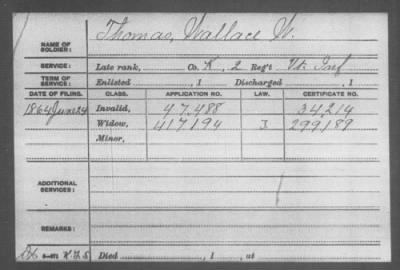 Thomas, Wallace W.
NAME OF SOLDIER:
SERVICE: Late rank, Co. K, 2 Reg't Vt. Inf
TERM OF SERVICE: Enlisted , 1 Discharged , 1
DATE OF FILING. CLASS. APPLICATION NO. LAW. CERTIFICATE NO.
1864 June 24 Invalid, 47.488 34,214
Widow, 417194 J 299189
Minor,
ADDITIONAL SERVICES:
REMARKS:
Died , 1 , at